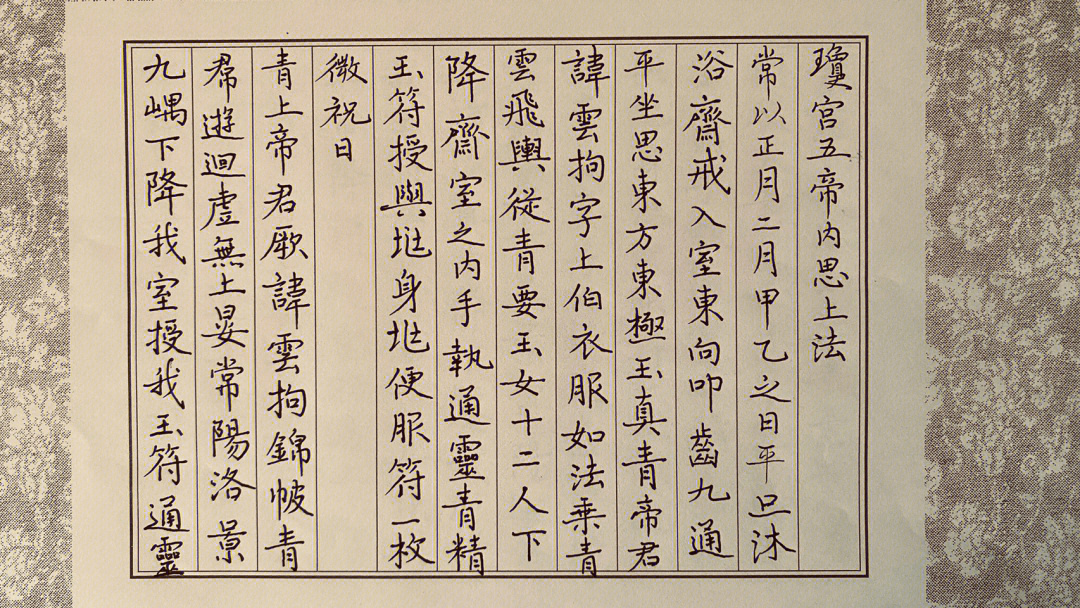 瓊宮五帝內思上法
常以正月二月甲乙之日平旦沐
浴齋戒入室東向叩齒九通
平坐思東方東極玉真青帝君
諱雲拘字上伯衣服如法乗青
雲飛輿從青要玉女十二人下
降齋室之內手執通靈青精
玉符授與兆身兆便服符一枚
微祝曰
青上帝君厥諱雲拘錦帔青
帬遊迴虛無上晏常陽洛景
九嵎下降我室授我玉符通靈